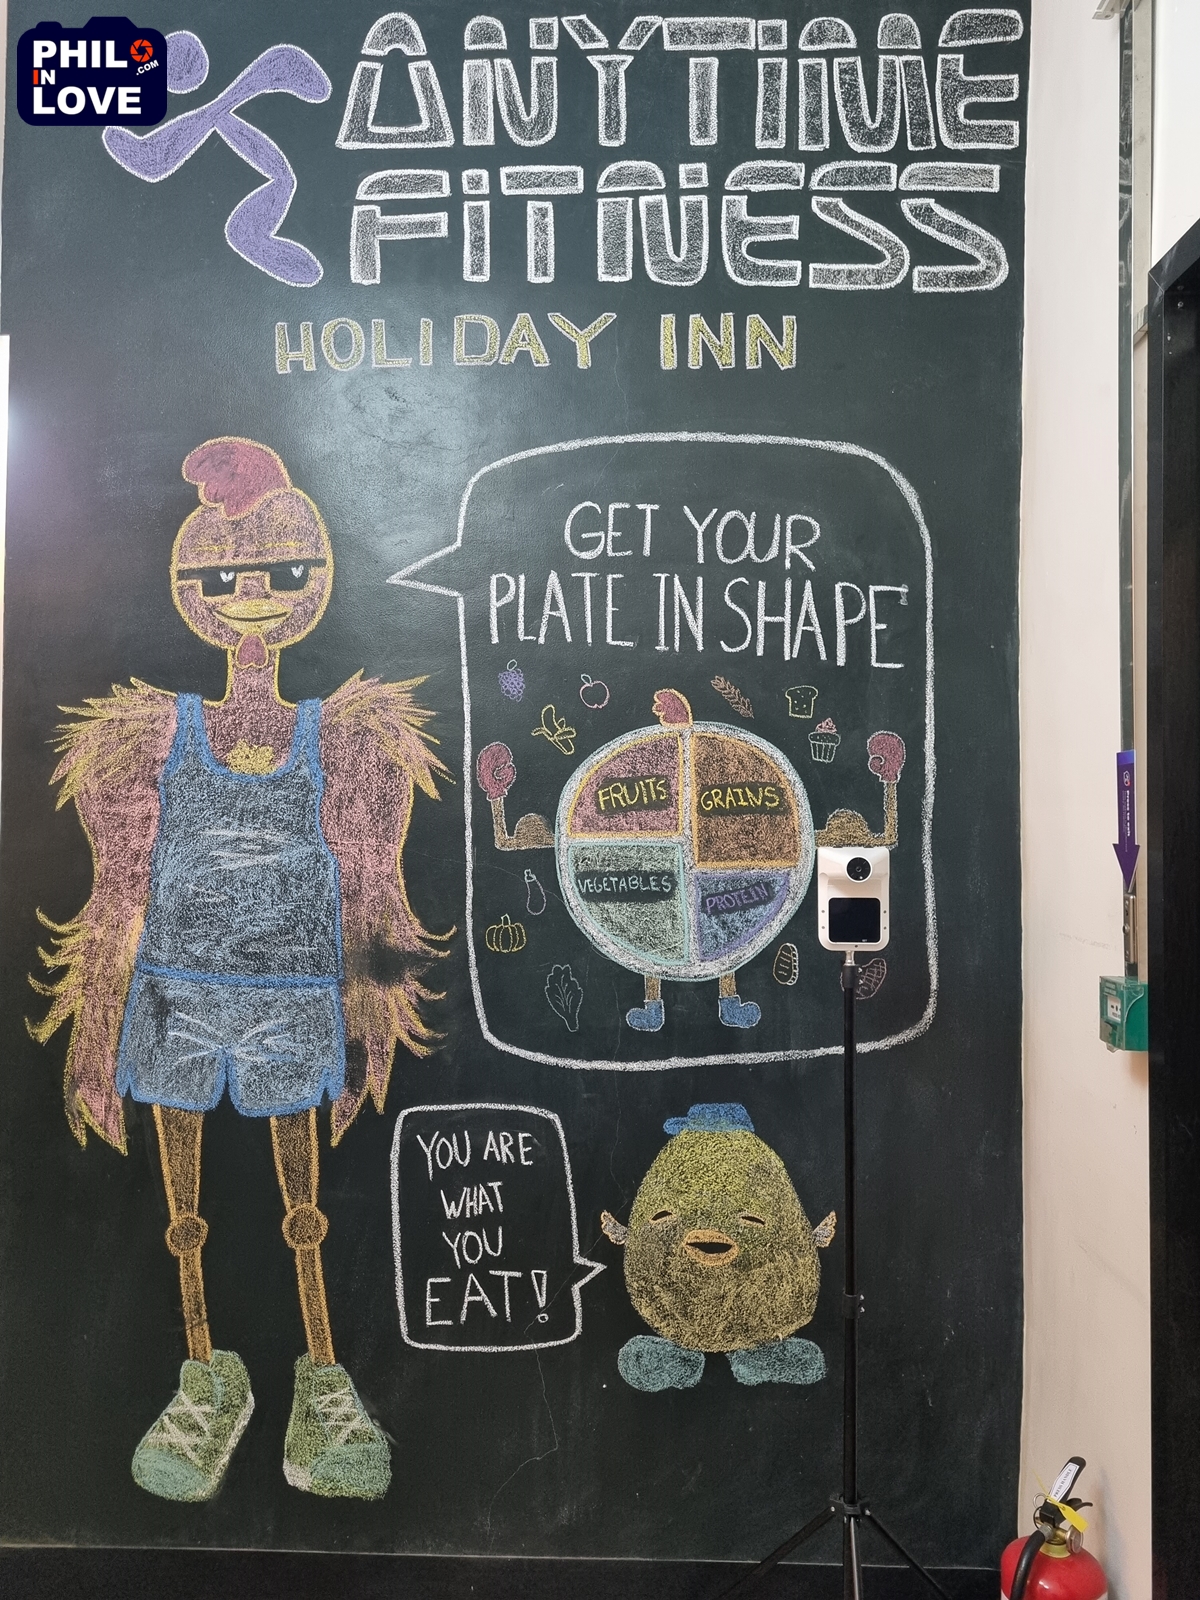 PHIL
IN
.COM
LOVE
ANYTIME
FITNESS
HOLIDAY INN
GET YOUR
PLATE IN SHAPE
FRUITS
GRAINS
VEGETABLES
PROTEIN
YOU ARE
WHAT
YOU
EAT!